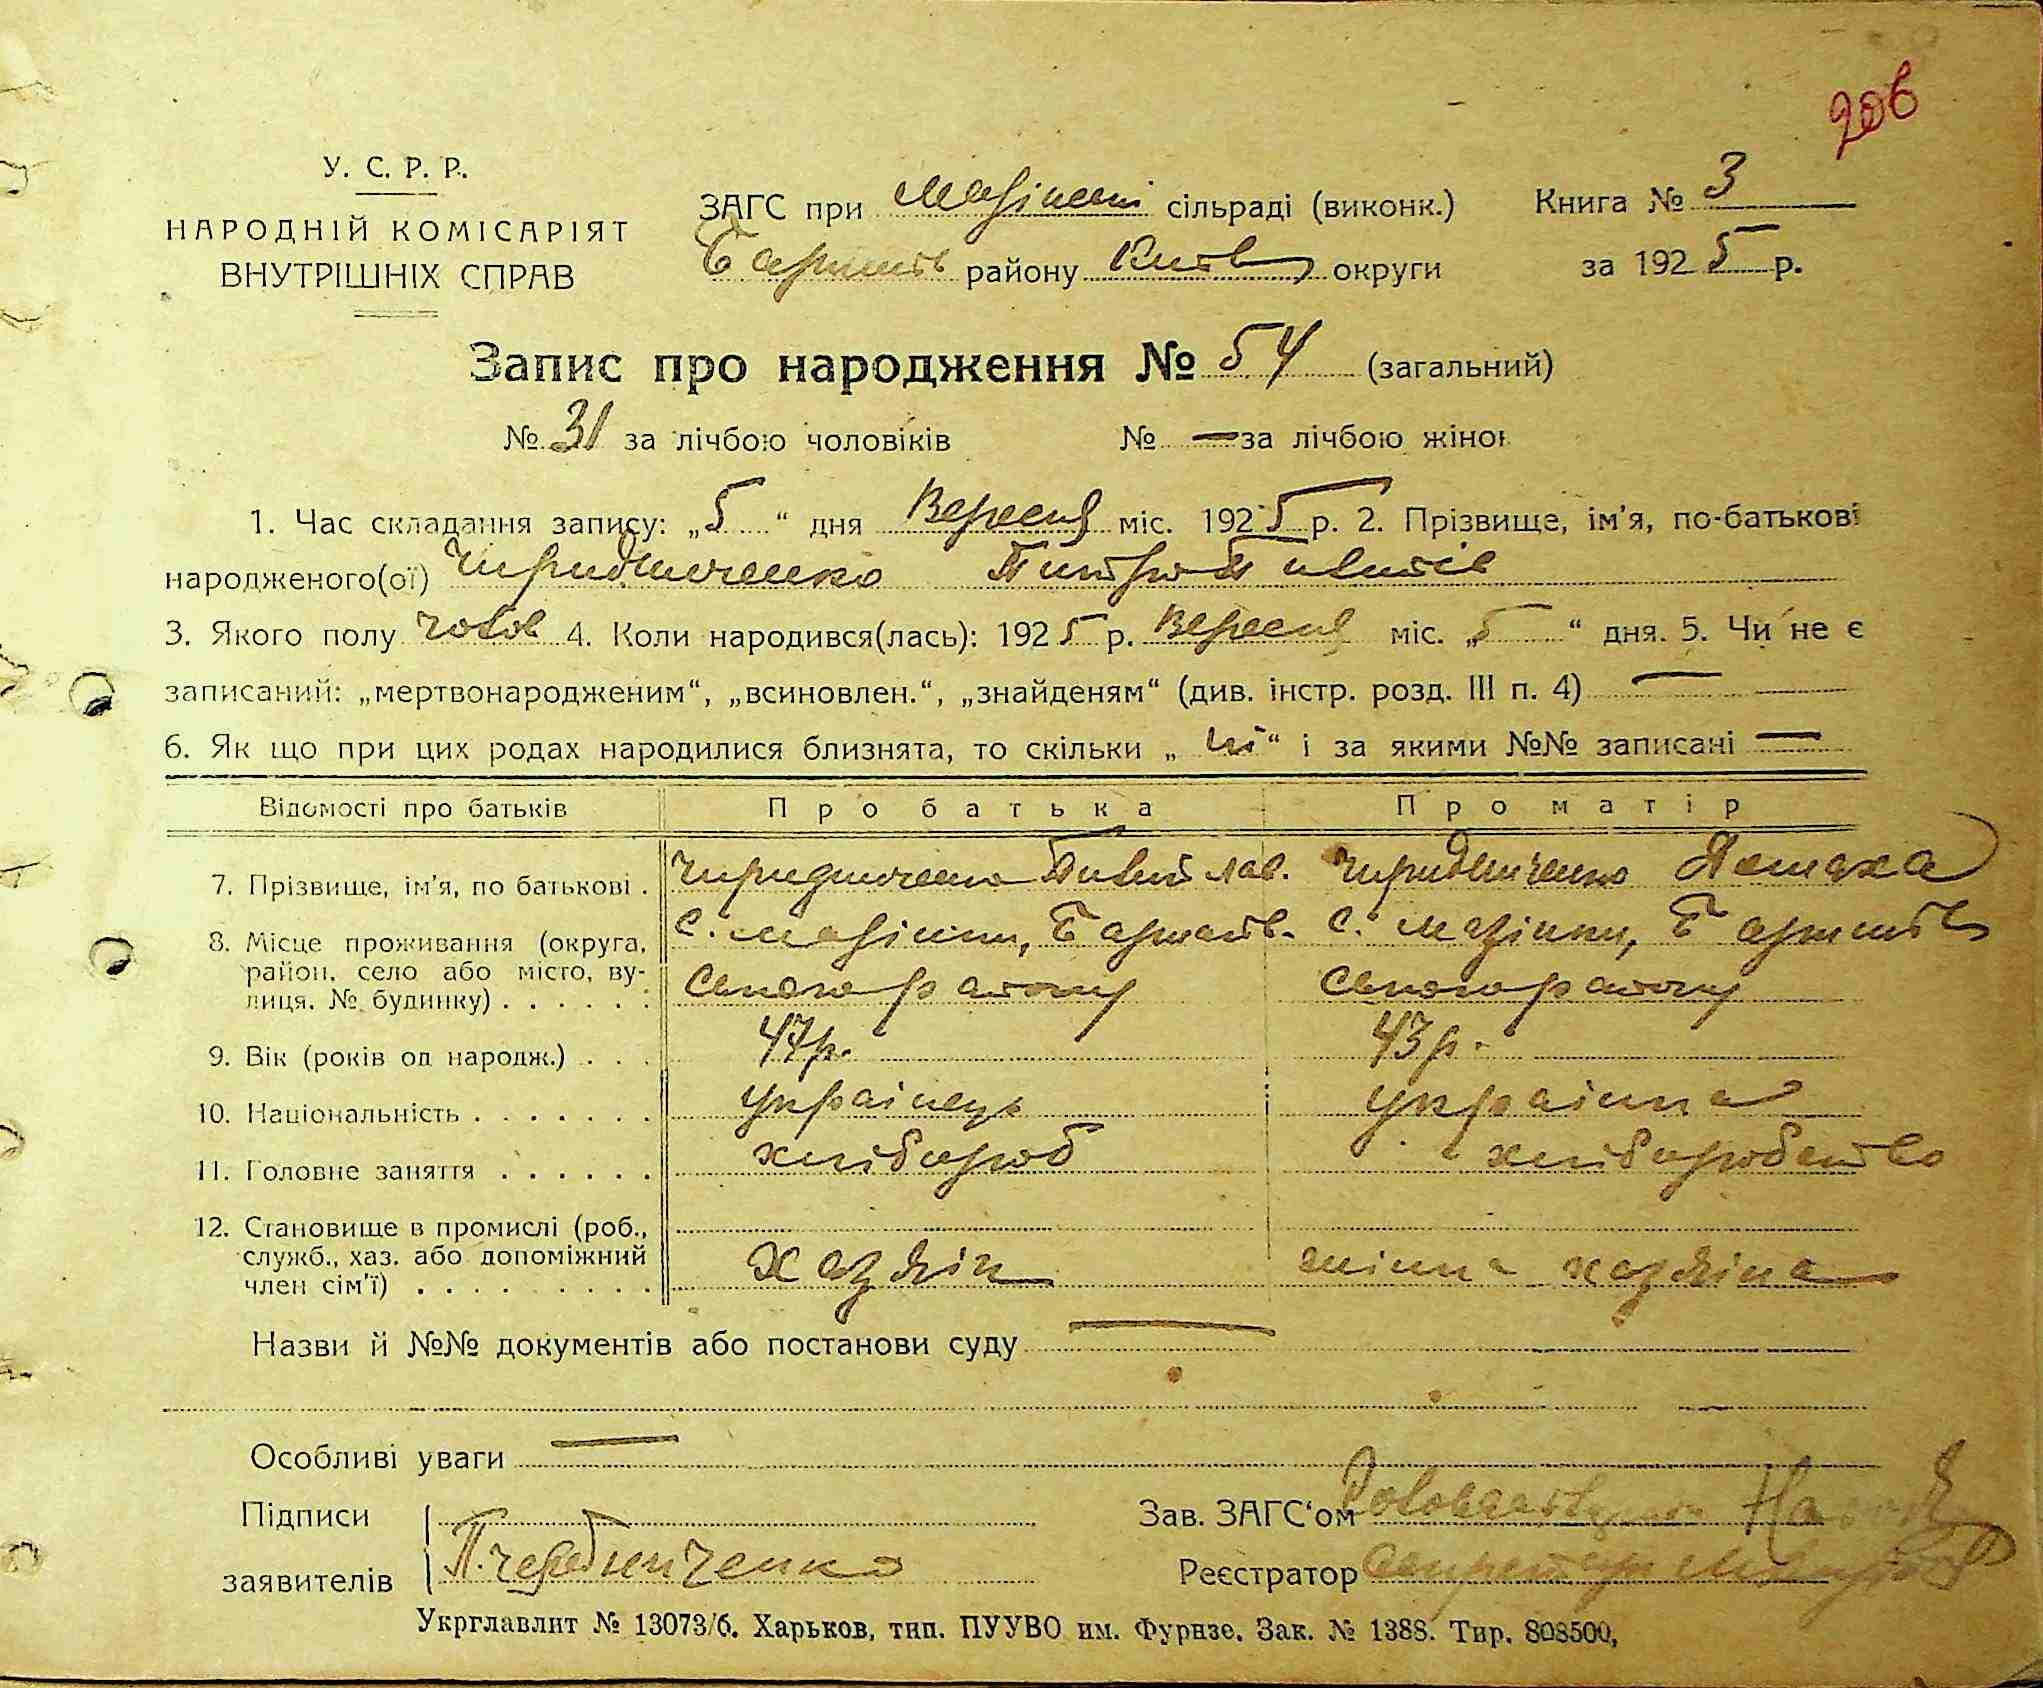 206
У. С. Р. Р.
НАРОДНІЙ КОМІСАРІЯТ
ВНУТРІШНІХ СПРАВ
ЗАГС при Мазінській сільраді (виконк.) Книга № 3
району Київ округи за 1925 р.
Запис про народження № 54 (загальний)
№ 31 за лічбою чоловіків № — за лічбою жінок
1. Час складання запису: „5“ дня Вересня міс. 1925 р. 2. Прізвище, ім'я, по-батькові
народженого(ої) Чиридниченко
3. Якого полу чолов 4. Коли народився(лась): 1925 р. Вересня міс. „5“ дня. 5. Чи не є
записаний: „мертвонародженим“, „всиновлен.“, „знайденям“ (див. інстр. розд. III п. 4) —
6. Як що при цих родах народилися близнята, то скільки „ні“ і за якими №№ записані —
Відомості про батьків Про батька Про матір
7. Прізвище, ім'я, по батькові . Чиридниченко Чиридниченко
8. Місце проживання (округа, с. Мазінки, с. Мазінки,
район, село або місто, ву-
лиця, № будинку) . . . . . . ського району ського району
9. Вік (років од народж.) . . . 47р. 43р.
10. Національність . . . . . . . українець українка
11. Головне заняття . . . . . . хлібороб хліборобство
12. Становище в промислі (роб.,
служб., хаз. або допоміжний хазяїн жінка хазяїна
член сім'ї) . . . . . . . . .
Назви й №№ документів або постанови суду —
Особливі уваги —
Підписи Зав. ЗАГС'ом
заявителів П. Чередниченко Реєстратор Секретар
Укрглавлит № 13073/б. Харьков, тип. ПУУВО им. Фурнзе. Зак. № 1388. Тир. 808500,